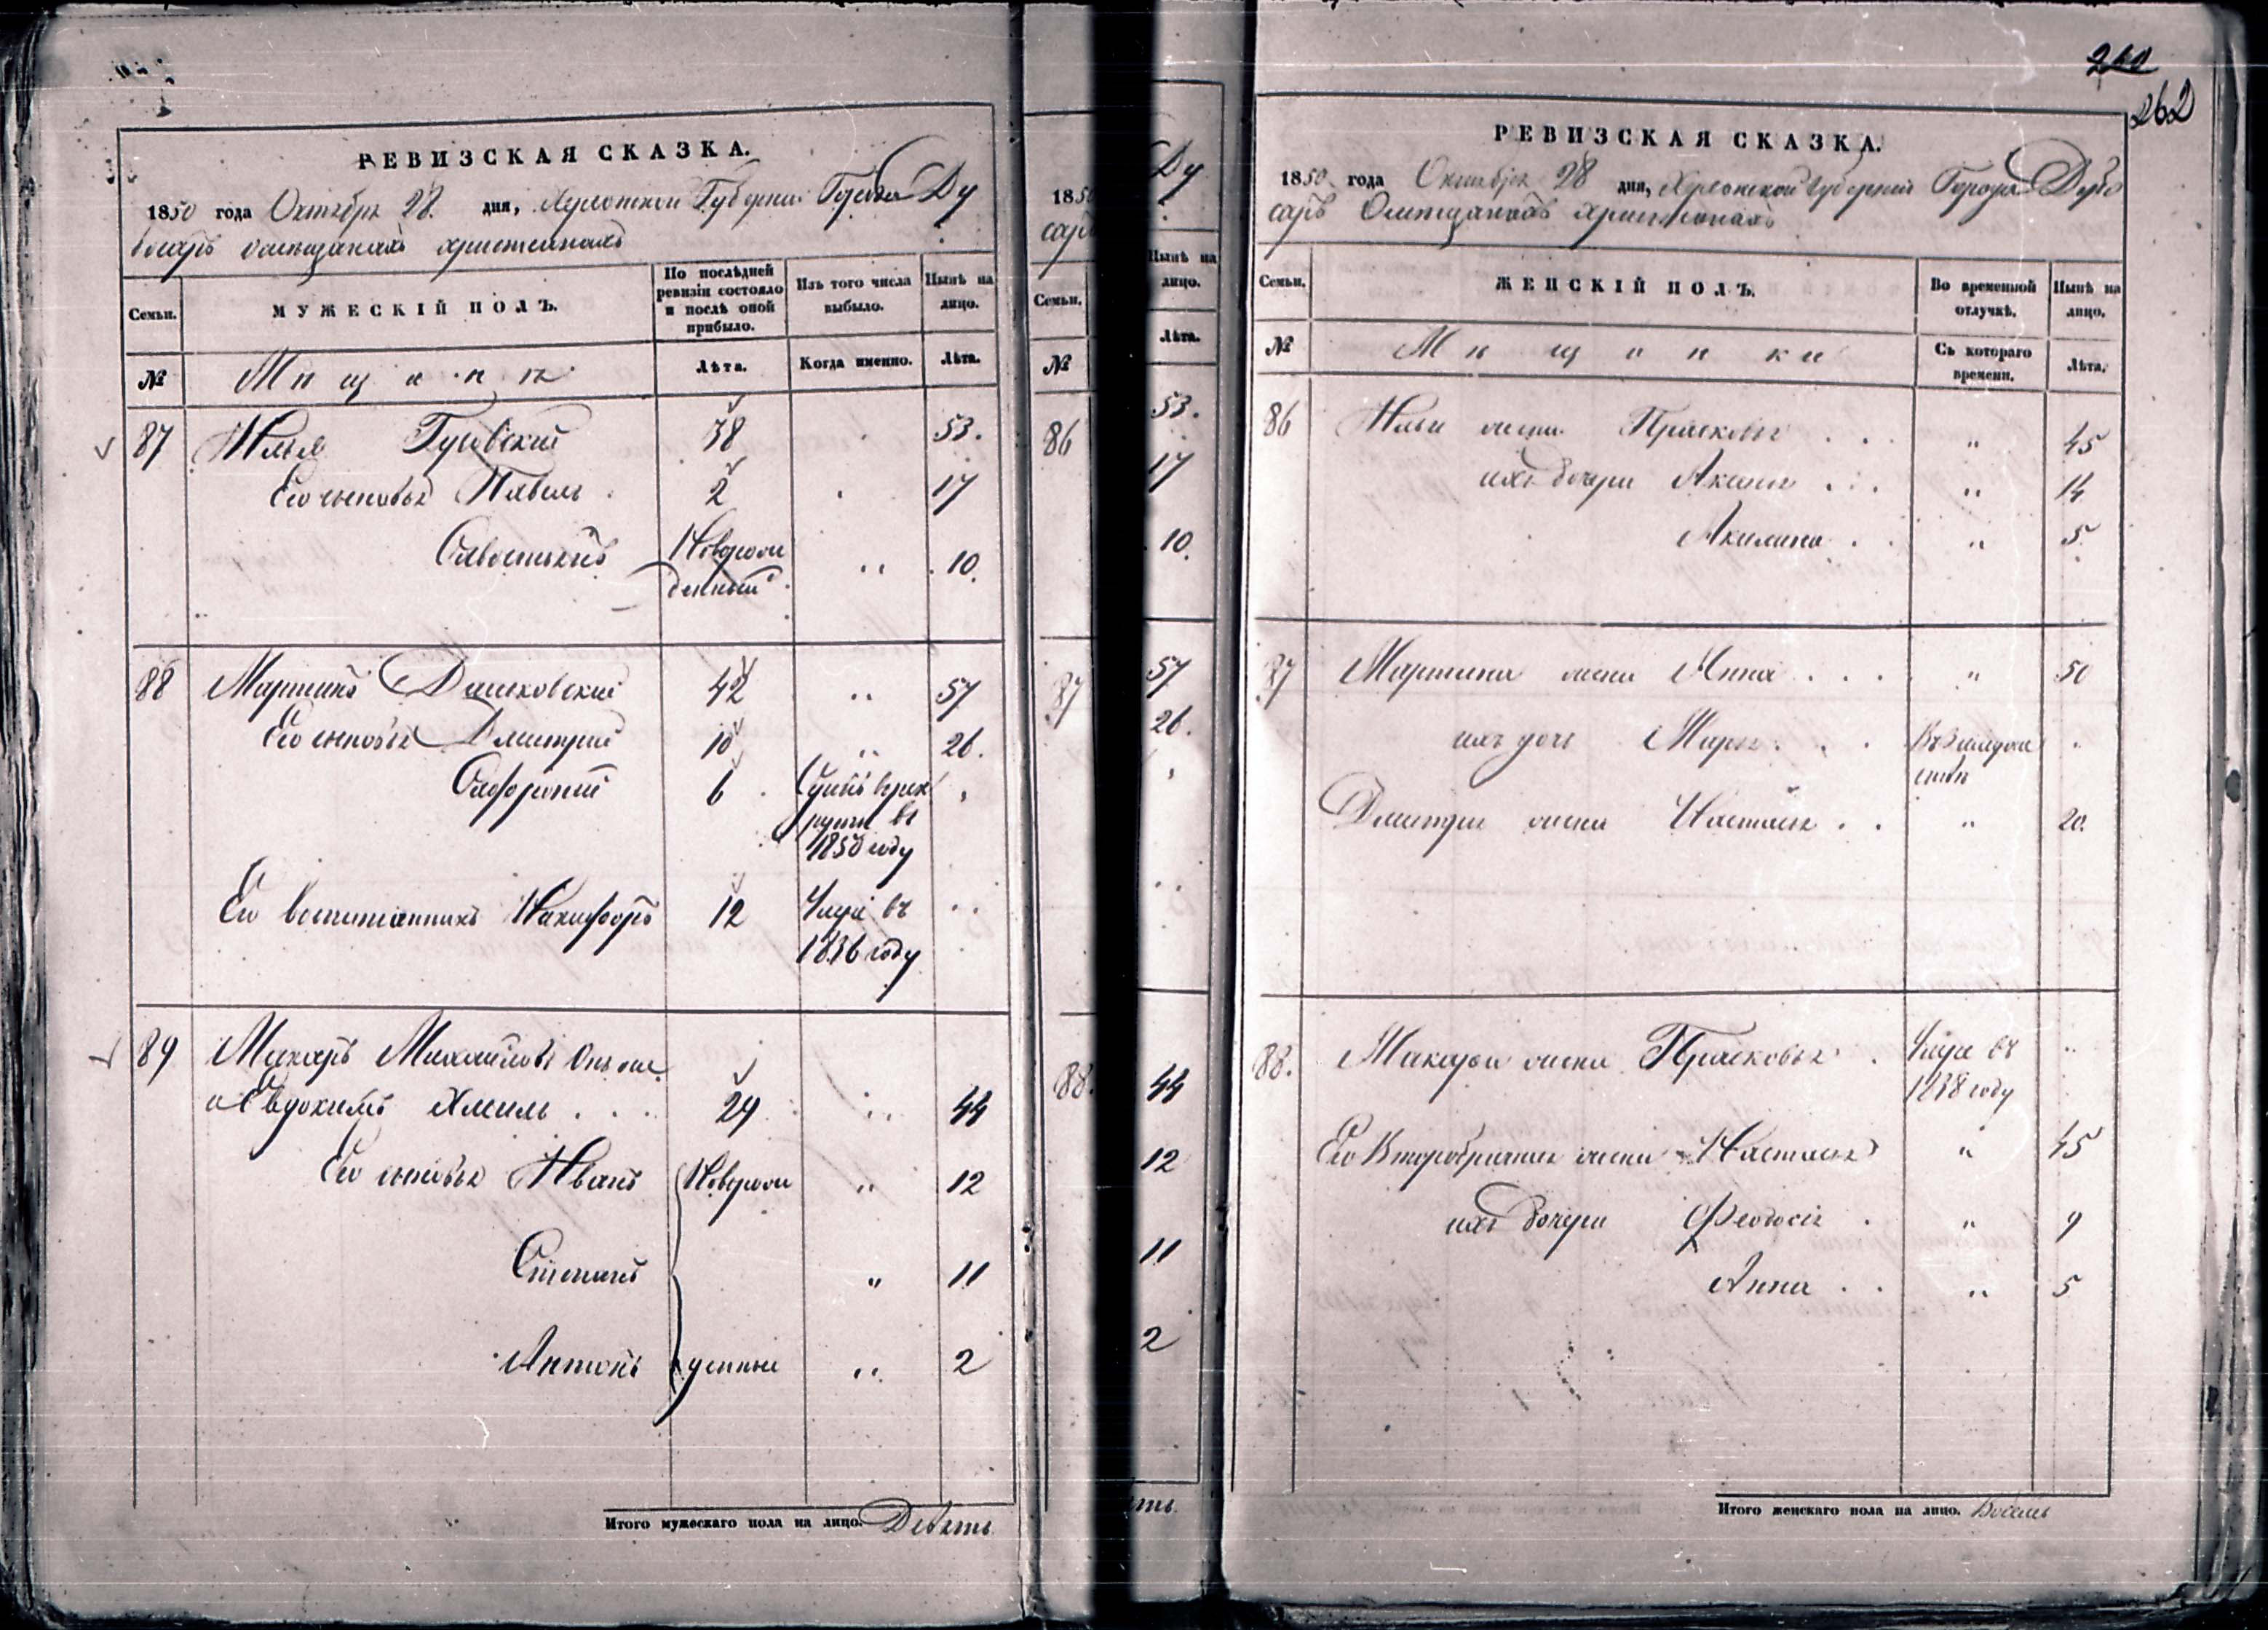 260
262
РЕВИЗСКАЯ СКАЗКА.
1850 года Октября 28. дня, Херсонской Губернии Города Ду
босаръ о мещанахъ христианахъ
Семьи.
МУЖЕСКІЙ ПОЛЪ.
По послѣдней
ревизіи состояло
и послѣ оной
прибыло.
Изъ того числа
выбыло.
Нынѣ на
лицо.
№
Мещане
Лѣта.
Когда именно.
Лѣта.
87 Илья Гусовский 38 53.
Его сыновья Павелъ 2 17
Савостьянъ Новорож 10.
денный
88 Мартинъ Дашковский 42 57
Его сыновья Дмитрий 10 26.
Софроний 6 Сданъ в рек
руты въ
1850 году
Его воспитанникъ Никифоръ 12 Умре въ
1836 году
89 Макаръ Михайловъ онъ же
и Евдокимъ Хмиль 29 44
Его сыновья Иванъ Новорож 12
Степанъ 11
Антонъ денные 2
Итого мужескаго пола на лицо. Девять
1850
саръ
Семьи.
№
86
87
88.
Ду
Нынѣ на
лицо.
Лѣта.
53.
17
10.
57
26.
44
12
11
2
ть.
РЕВИЗСКАЯ СКАЗКА.
1850 года Октября 28 дня, Херсонской Губернии Города Дубо
саръ О мещанахъ христианахъ
Семьи.
ЖЕНСКІЙ ПОЛЪ.
Во временной
отлучкѣ.
Нынѣ на
лицо.
№
Мещанки
Съ котораго
времени.
Лѣта.
86 Ильи жена Прасковья 45
ихъ дочери Аксинья 14
Акилина 5
87 Мартина жена Анна 50
ихъ дочь Марья В замуже
стве
Дмитрия жена Настасья 20.
88. Макарья жена Прасковья Умре въ
1838 году
Его Второбрачная жена Настасья 45
ихъ дочери Феодосія 9
Анна 5
Итого женскаго пола на лицо. Восемь